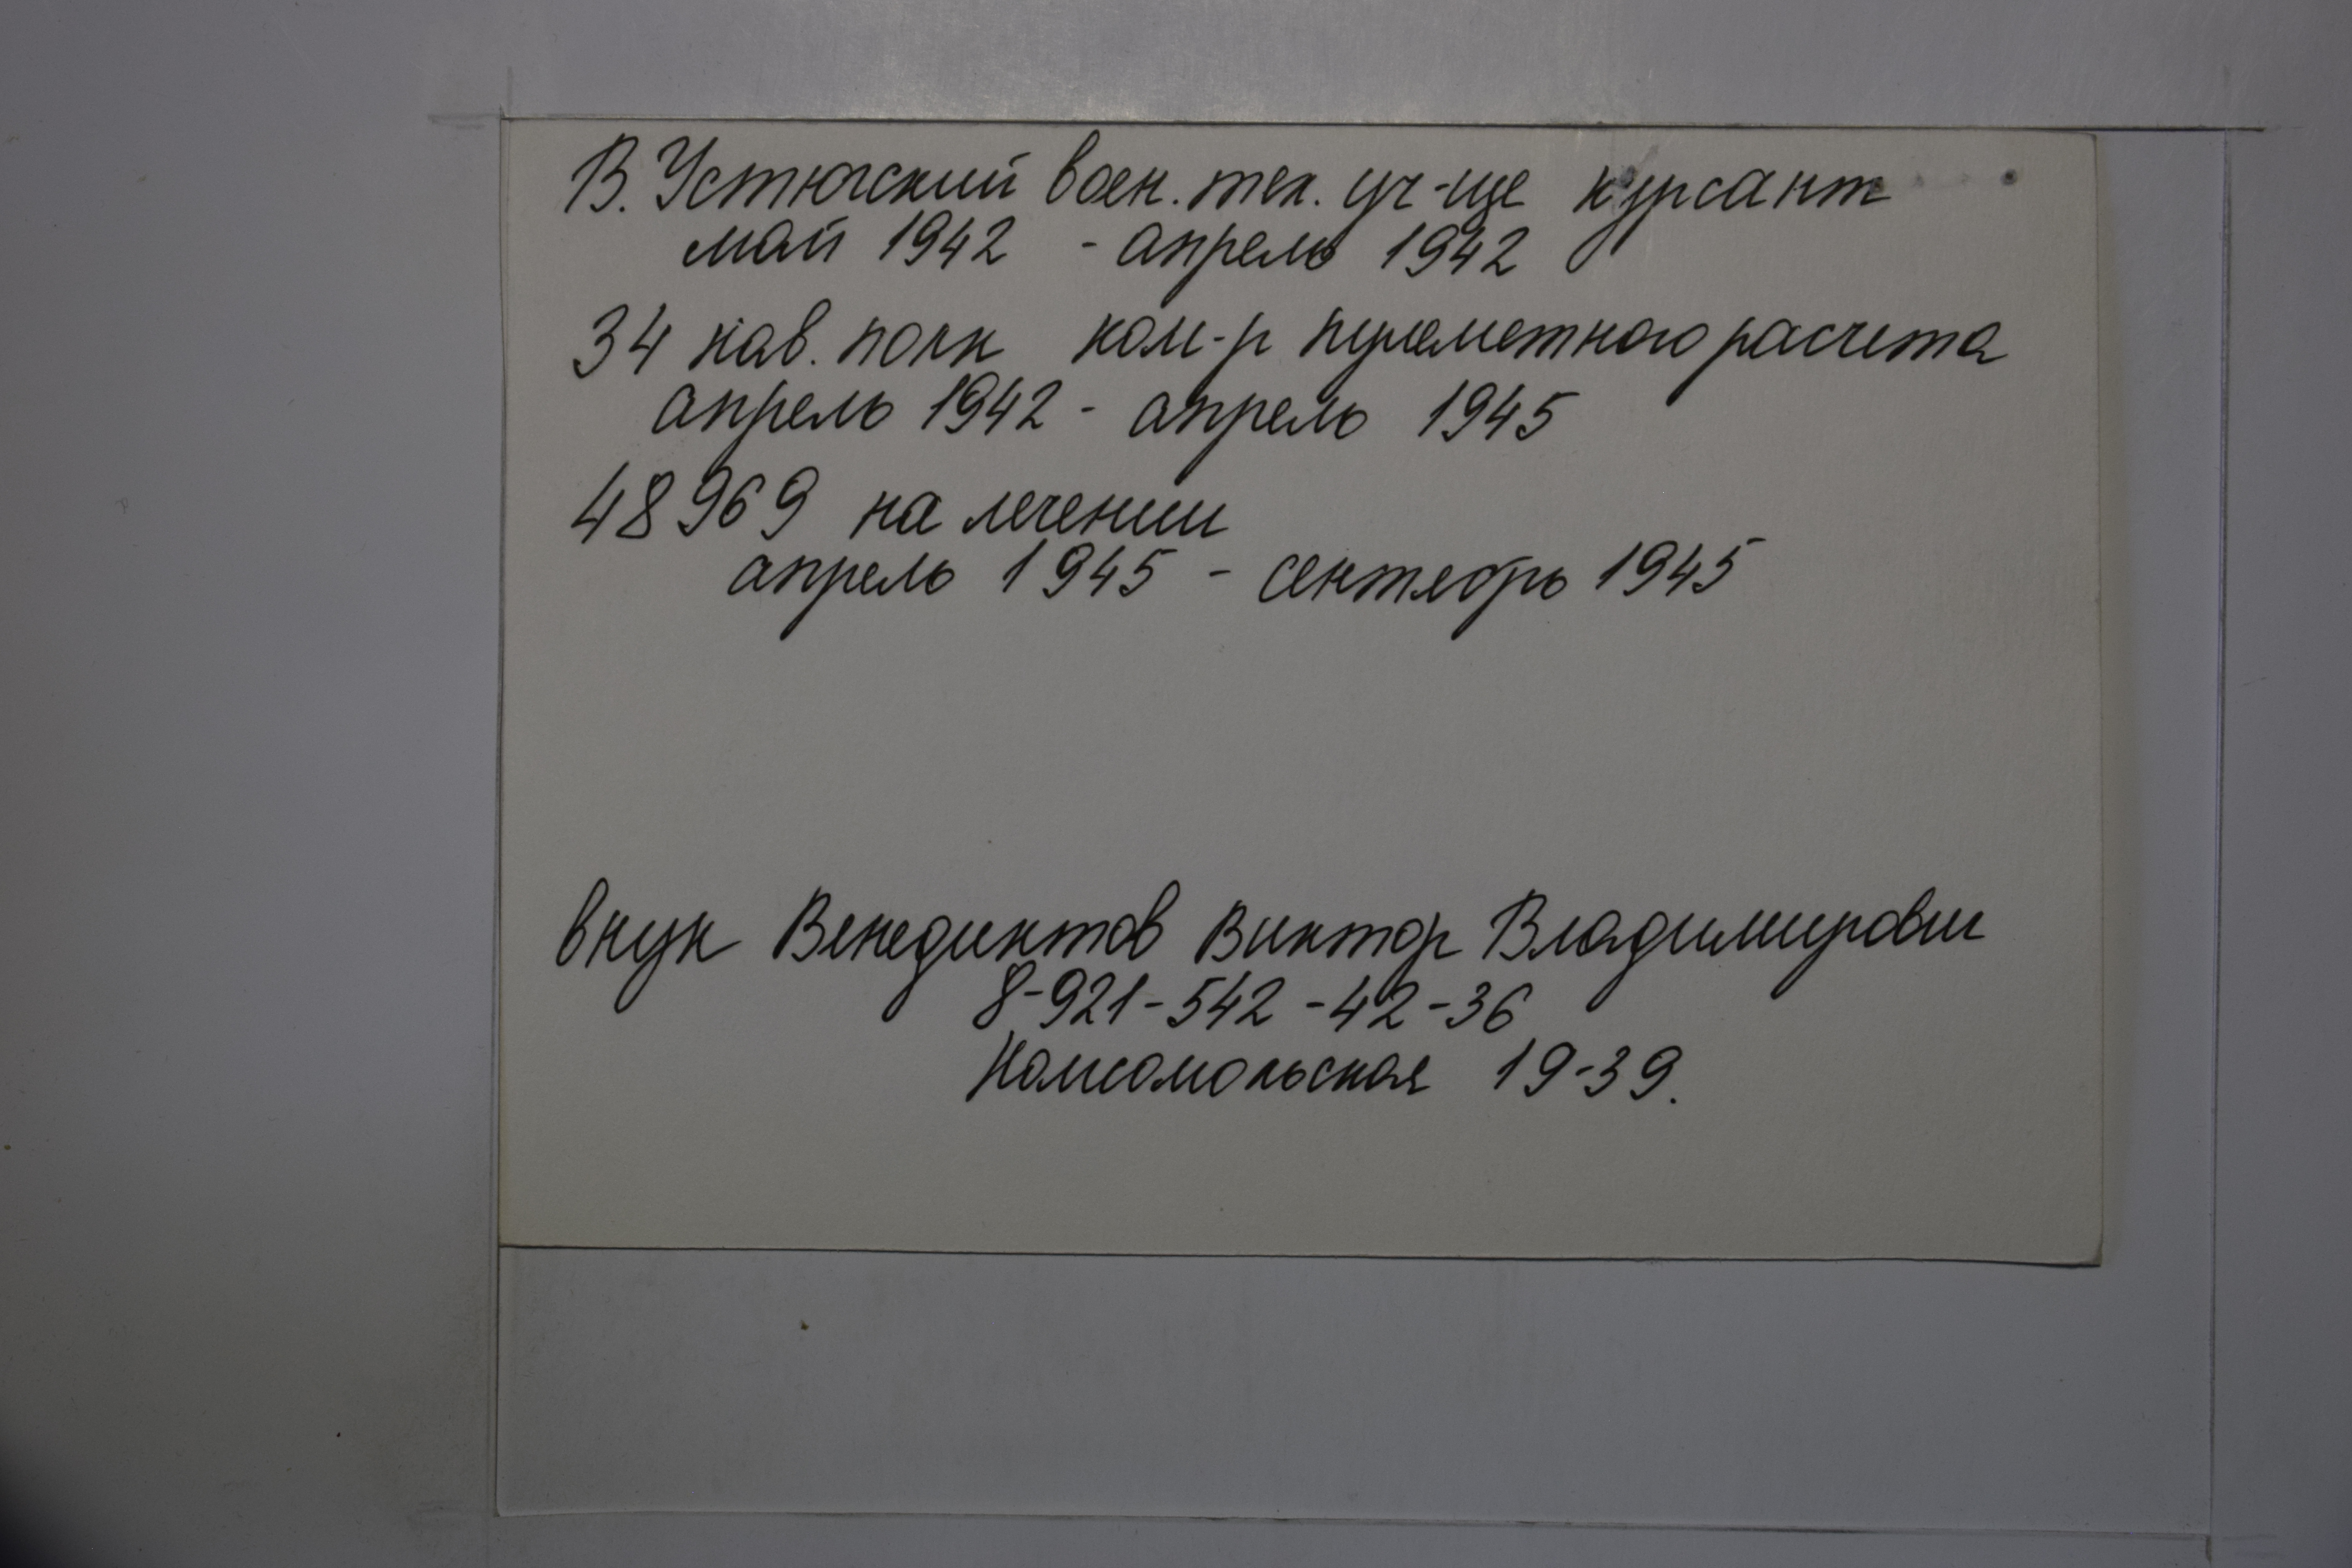 В. Устюгский воен. тех. уч-ще курсант
май 1942 - апрель 1942
34 кав. полк ком-р пулеметного расчета
апрель 1942 - апрель 1945
48969 на лечении
апрель 1945 - сентябрь 1945
внук Венедиктов Виктор Владимирович
8-921-542-42-36
Комсомольская 19-39.